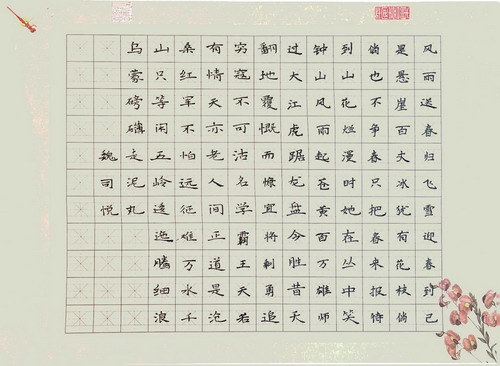 风雨送春归飞雪迎春到已
是悬崖百丈冰犹有花枝俏
俏也不争春只把春来报待
到山花烂漫时她在丛中笑
钟山风雨起苍黄百万雄师
过大江虎踞龙盘今胜昔天
翻地覆慨而慷宜将剩勇追
穷寇不可沽名学霸王天若
有情天亦老人间正道是沧
桑红军不怕远征难万水千
山只等闲五岭逶迤腾细浪
乌蒙磅礴走泥丸
魏司悦